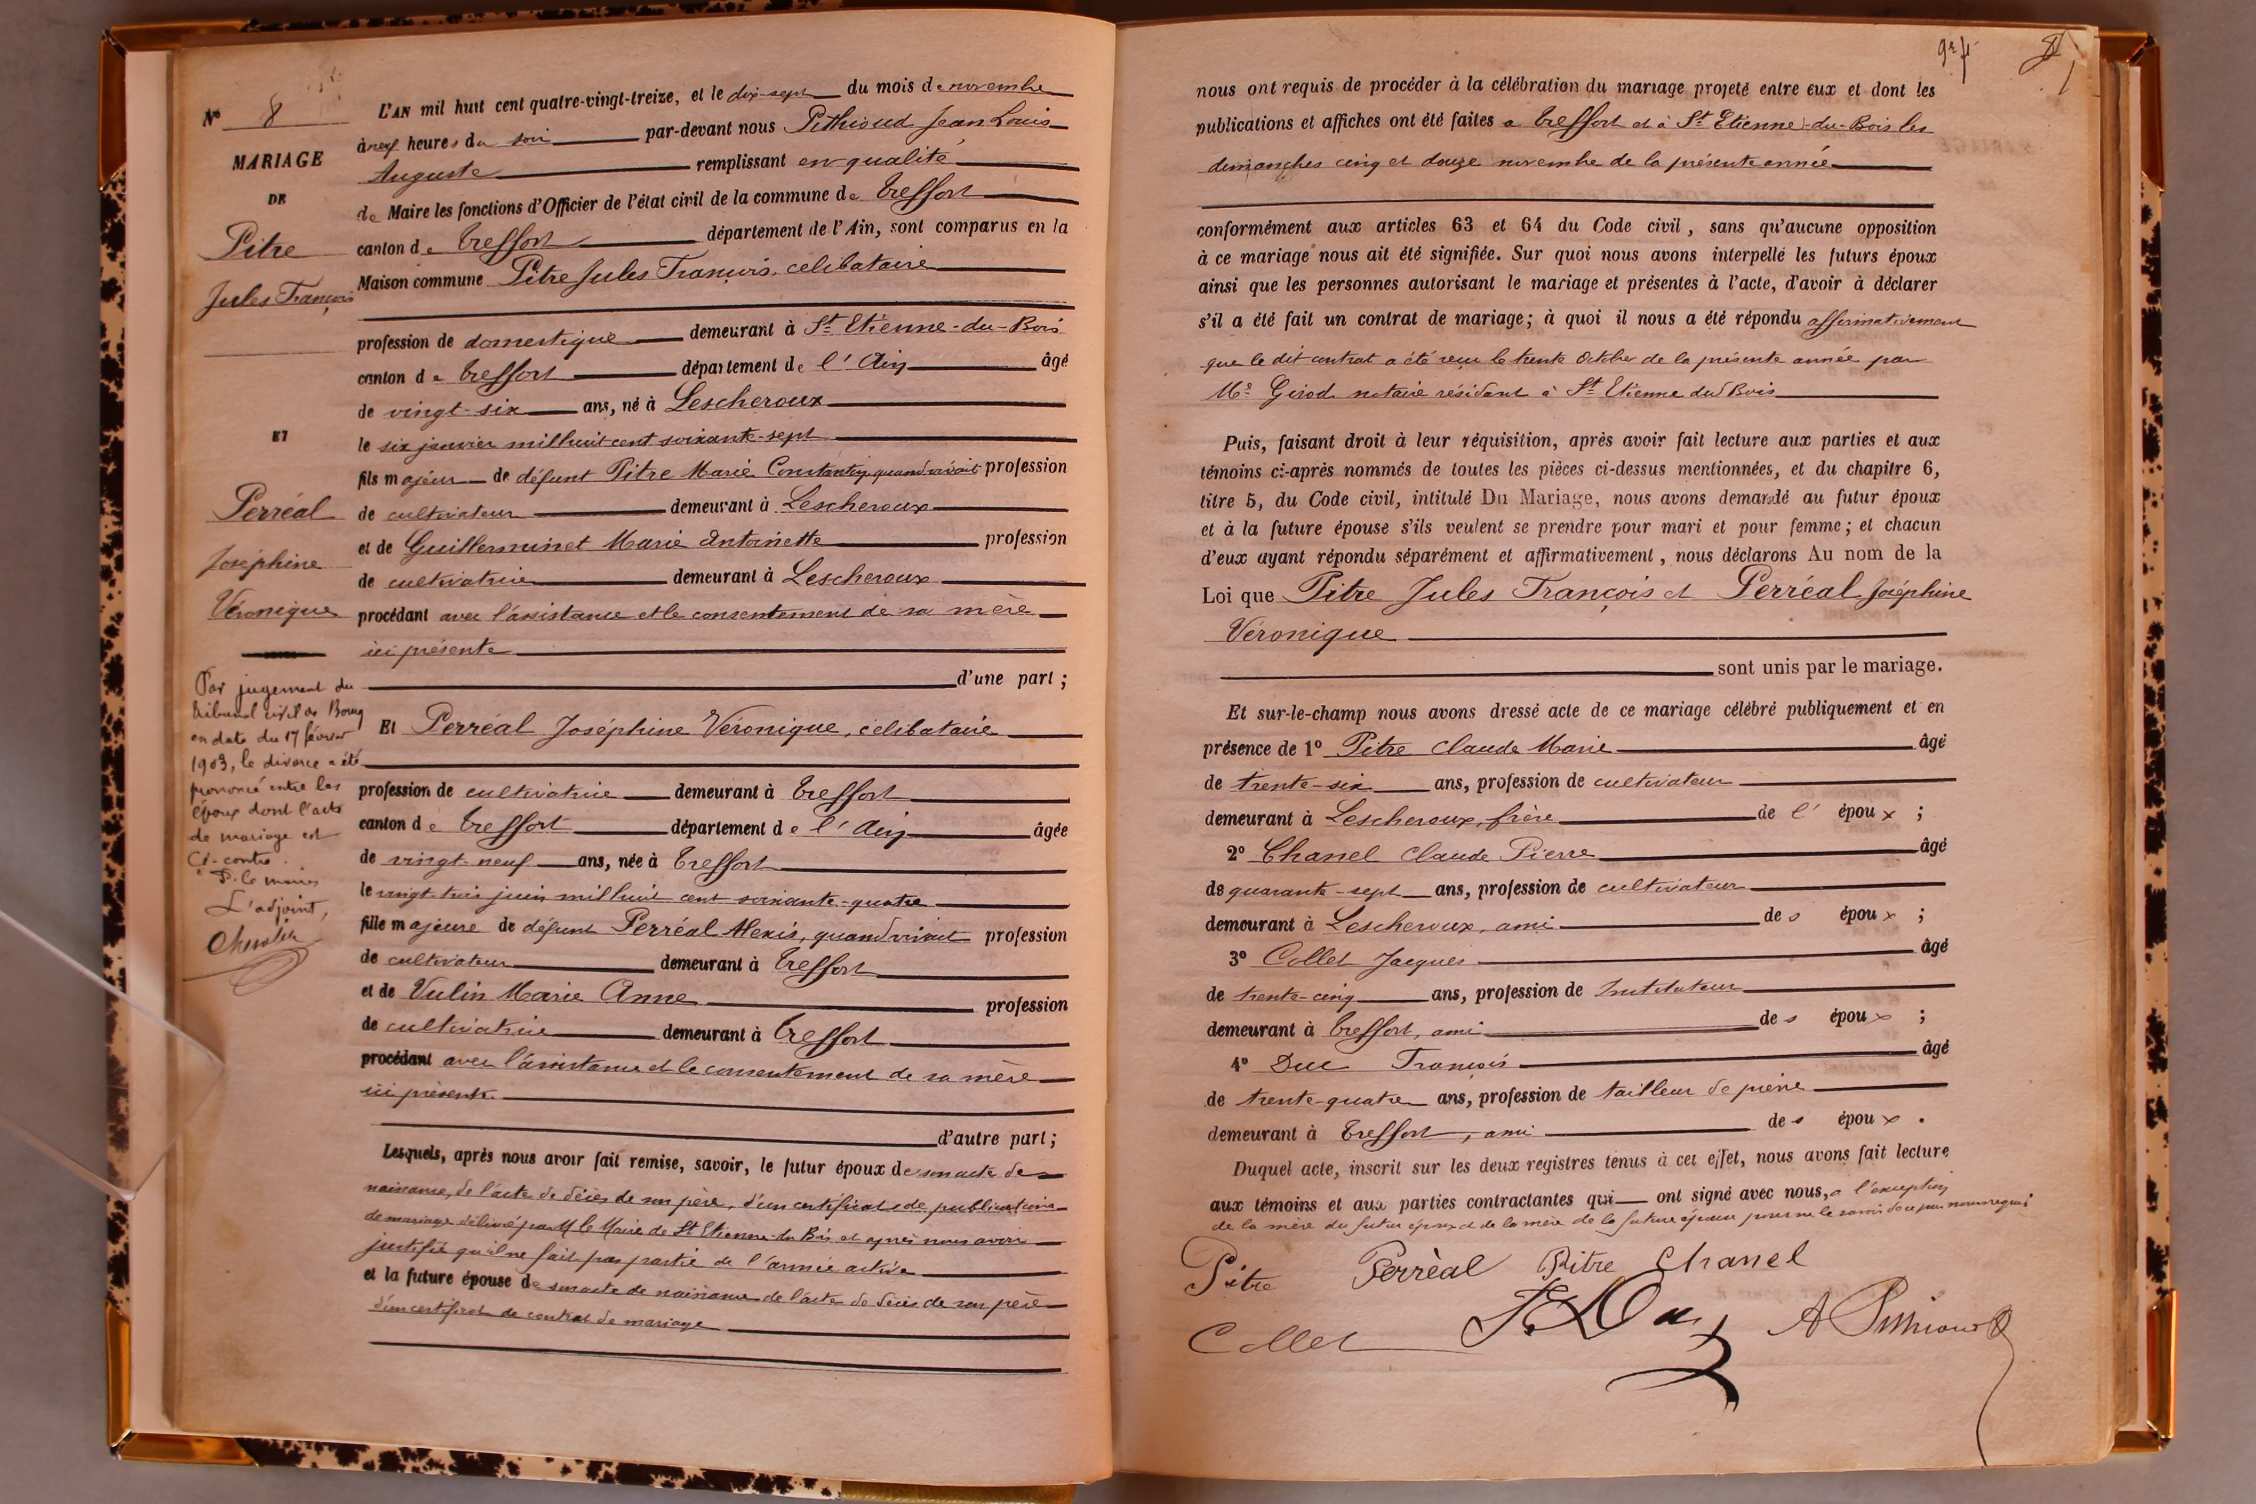 Nº 8
MARIAGE
DE
Pitre
Jules François
ET
Perréal
Joséphine
Véronique
Par jugement du
tribunal civil de Bourg
en date du 17 février
1903, le divorce a été
prononcé entre les
époux dont l'acte
de mariage est
Ci-contre.
P. le maire
L'adjoint,
L'AN mil huit cent quatre-vingt-treize, et le dix-sept du mois de novembre
à neuf heures du soir par-devant nous Pithioud Jean Louis
Auguste remplissant en qualité
de Maire les fonctions d'Officier de l'état civil de la commune de Treffort
canton de Treffort département de l'Ain, sont comparus en la
Maison commune Pitre Jules François, célibataire
profession de domestique demeurant à St Etienne-du-Bois
canton de Treffort département de l'Ain âgé
de vingt-six ans, né à Lescheroux
le six janvier mil huit cent soixante-sept
fils majeur de défunt Pitre Marie Constantin, quand vivait profession
de cultivateur demeurant à Lescheroux
et de Guillerminet Marie Antoinette profession
de cultivatrice demeurant à Lescheroux
procédant avec l'assistance et le consentement de sa mère
ici présente
d'une part ;
Et Perréal Joséphine Véronique, célibataire
profession de cultivatrice demeurant à Treffort
canton de Treffort département de l'Ain âgée
de vingt-neuf ans, née à Treffort
le vingt-trois juin mil huit cent soixante-quatre
fille majeure de défunt Perréal Alexis, quand vivait profession
de cultivateur demeurant à Treffort
et de Vulin Marie Anne profession
de cultivatrice demeurant à Treffort
procédant avec l'assistance et le consentement de sa mère
ici présente.
d'autre part ;
Lesquels, après nous avoir fait remise, savoir, le futur époux de son acte de
naissance, de l'acte de décès de son père, d'un certificat de publications
de mariage délivré par M. le Maire de St Etienne-du-Bois et après nous avoir
justifié qu'il ne fait pas partie de l'armée active
et la future épouse de son acte de naissance de l'acte de décès de son père
d'un certificat de contrat de mariage
8
nous ont requis de procéder à la célébration du mariage projeté entre eux et dont les
publications et affiches ont été faites à Treffort et à St Etienne-du-Bois les
dimanches cinq et douze novembre de la présente année
conformément aux articles 63 et 64 du Code civil, sans qu'aucune opposition
à ce mariage nous ait été signifiée. Sur quoi nous avons interpellé les futurs époux
ainsi que les personnes autorisant le mariage et présentes à l'acte, d'avoir à déclarer
s'il a été fait un contrat de mariage ; à quoi il nous a été répondu affirmativement
que le dit contrat a été reçu le trente Octobre de la présente année par
Me Girod notaire résidant à St Etienne du Bois
Puis, faisant droit à leur réquisition, après avoir fait lecture aux parties et aux
témoins ci-après nommés de toutes les pièces ci-dessus mentionnées, et du chapitre 6,
titre 5, du Code civil, intitulé Du Mariage, nous avons demandé au futur époux
et à la future épouse s'ils veulent se prendre pour mari et pour femme ; et chacun
d'eux ayant répondu séparément et affirmativement, nous déclarons Au nom de la
Loi que Pitre Jules François et Perréal Joséphine
Véronique
sont unis par le mariage.
Et sur-le-champ nous avons dressé acte de ce mariage célébré publiquement et en
présence de 1º Pitre Claude Marie âgé
de trente-six ans, profession de cultivateur
demeurant à Lescheroux, frère de l'époux ;
2º Chanel Claude Pierre âgé
de quarante-sept ans, profession de cultivateur
demeurant à Lescheroux, ami des époux ;
3º Collet Jacques âgé
de trente-cinq ans, profession de Instituteur
demeurant à Treffort, ami des époux ;
4º Duc François âgé
de trente-quatre ans, profession de tailleur de pierre
demeurant à Treffort, ami des époux .
Duquel acte, inscrit sur les deux registres tenus à cet effet, nous avons fait lecture
aux témoins et aux parties contractantes qui ont signé avec nous, à l'exception
de la mère du futur époux et de la mère de la future épouse pour ne le savoir de ce par nous requis
Pitre Perréal Pitre Chanel
Collet F. Duc A Pithioud